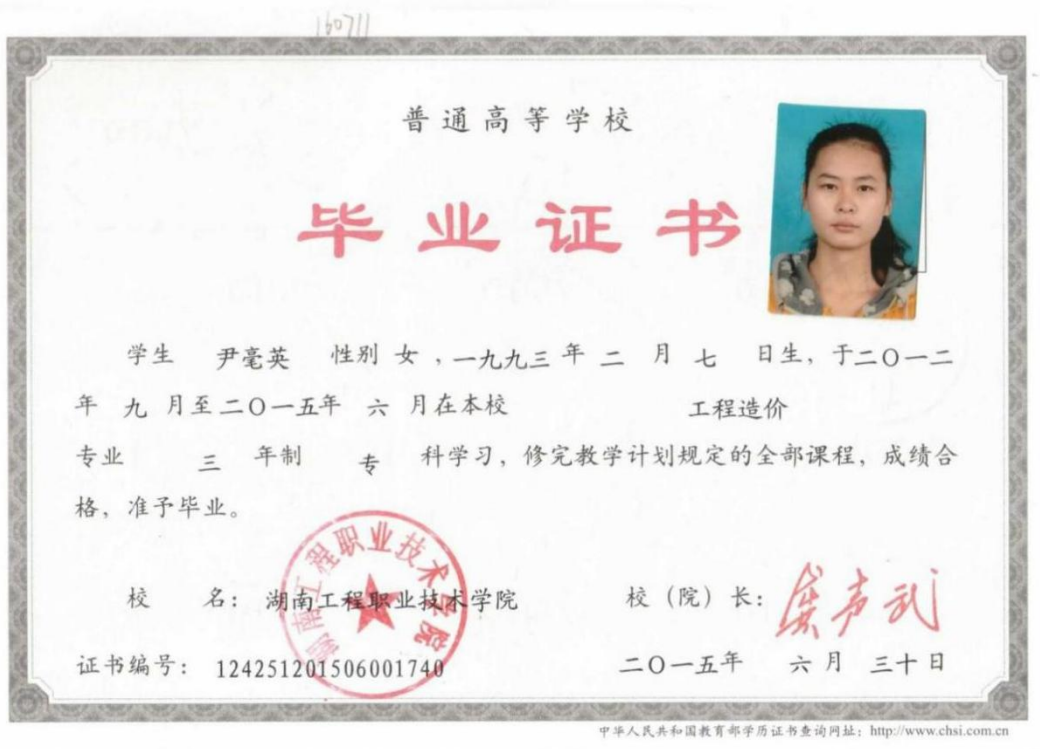 160711
普通高等学校
毕业证书
学生 尹毫英 性别 女，一九九三 年 二 月 七 日生，于二〇一二
年 九 月至二〇一五年 六 月在本校 工程造价
专业 三 年制 专 科学习，修完教学计划规定的全部课程，成绩合
格，准予毕业。
湖南工程职业技术学院
校 名：湖南工程职业技术学院 校（院）长：
证书编号：124251201506001740 二〇一五年 六月 三十日
中华人民共和国教育部学历证书查询网址：http://www.chsi.com.cn